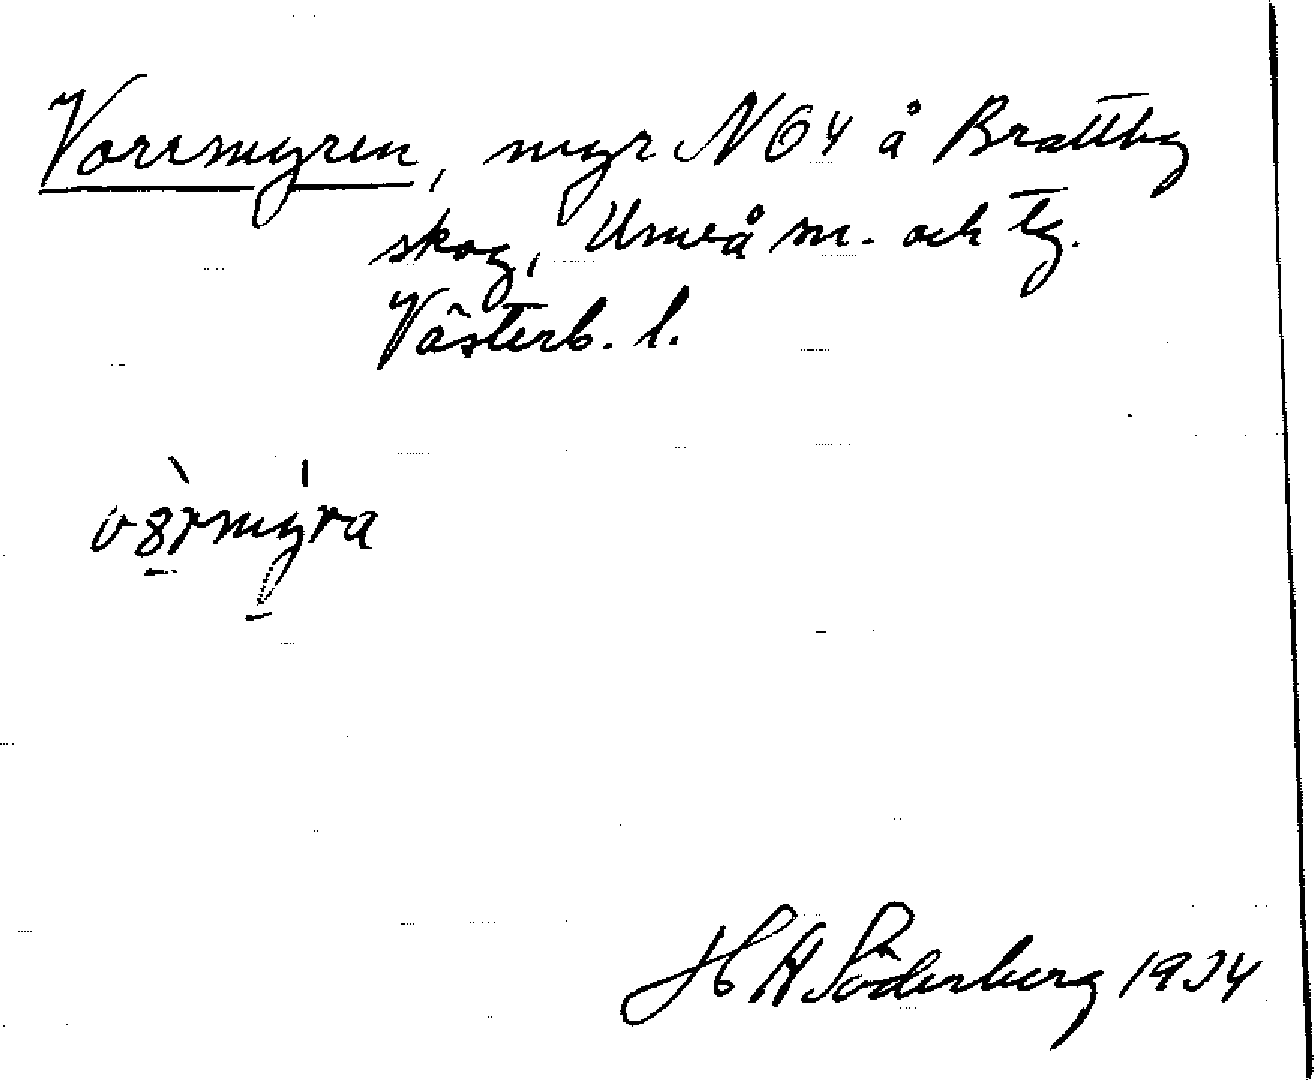 Vorrmyren, myr N 64 å Brattby
skog, Umeå m. och tg.
Västerb. l.
H A Söderberg 1934